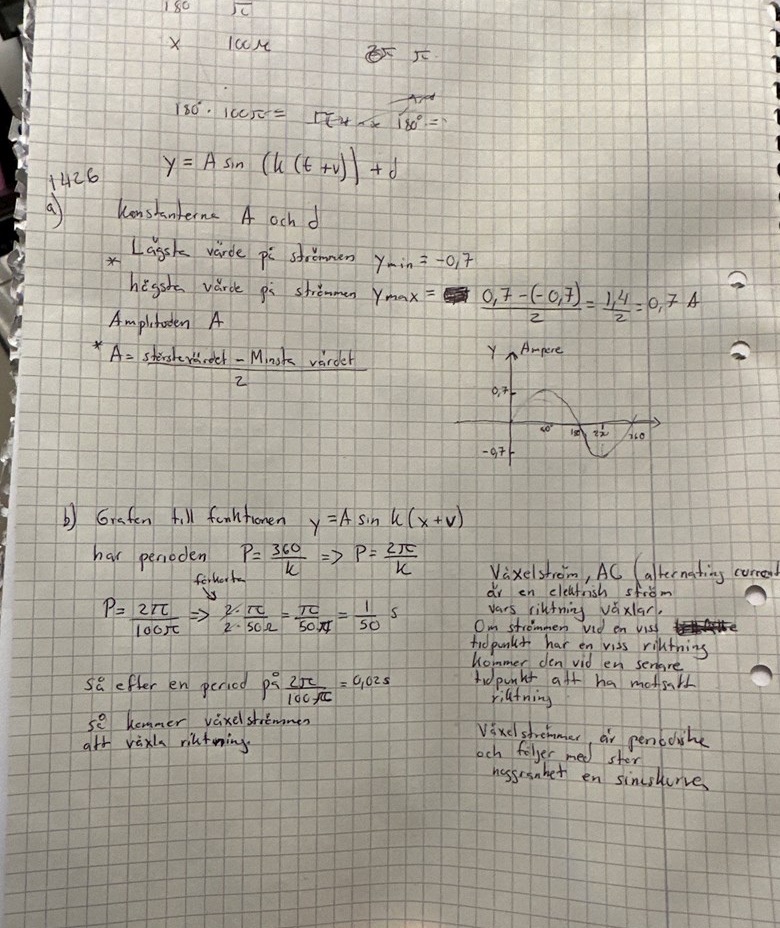 180 π
x 100π
π
180° · 100π = 180° =
1426
y = A sin (k (t + v)) + d
a) Konstanterna A och d
* Lägsta värde på strömmen y min = -0,7
högsta värde på strömmen y max = 0,7-(-0,7)/2 = 1,4/2 = 0,7 A
Amplituden A
* A = störstevärdet - Minsta värdet / 2
y Ampere
0,7
-0,7
90° 180 360
b) Grafen till funktionen y = A sin k (x + v)
har perioden P = 360/k => P = 2π/k
förkorta
P = 2π/100π => 2·π/2·50π = π/50π = 1/50 s
så efter en period på 2π/100π = 0,02 s
så kommer växelströmmen
att växla riktning.
Växelström, AC (alternating current
är en elektrisk ström
vars riktning växlar.
Om strömmen vid en viss
tidpunkt har en viss riktning
kommer den vid en senare
tidpunkt att ha motsatt
riktning
Växelströmmer är periodiske
och följer med stor
noggranhet en sinuskurva